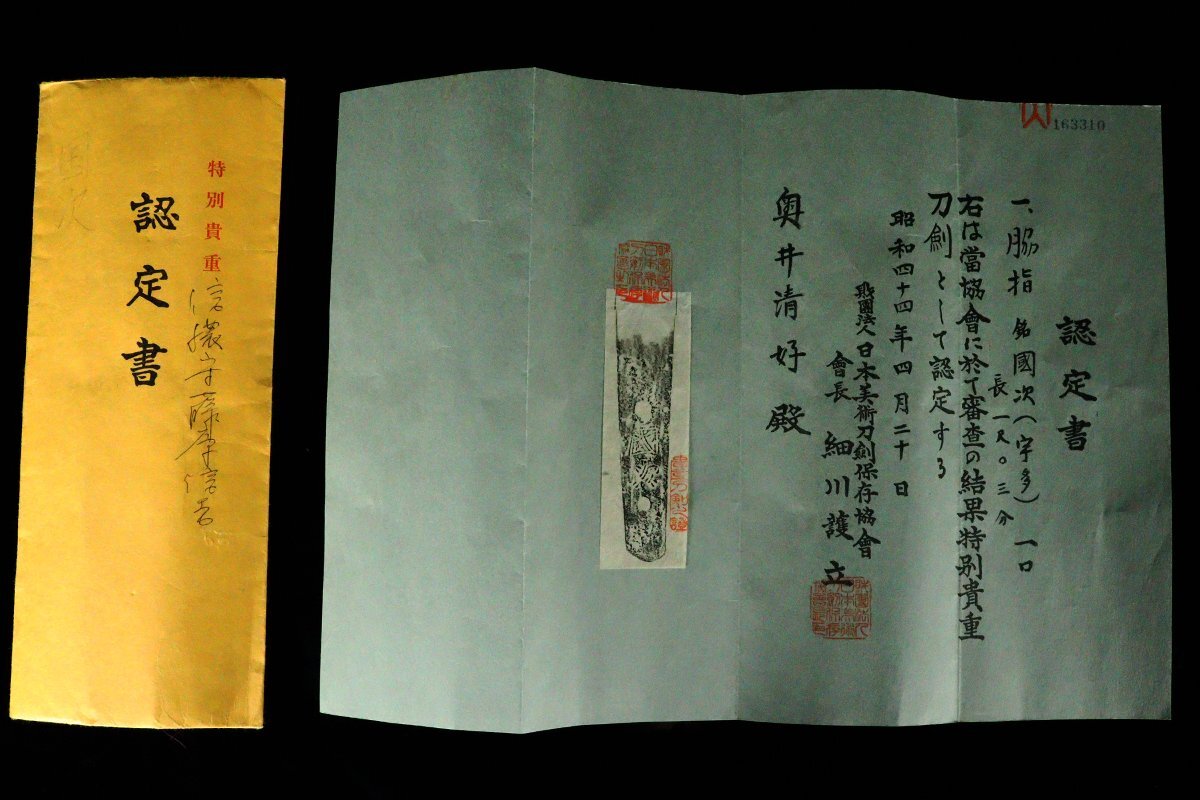 特別貴重
認定書
國次
163310
認定書
一、脇指 銘國次(宇多) 一口
長一尺〇三分
右は當協會に於て審査の結果特別貴重
刀劍として認定する
昭和四十四年四月二十日
財團法人日本美術刀劍保存協會
會長 細川護立
奥井清好殿